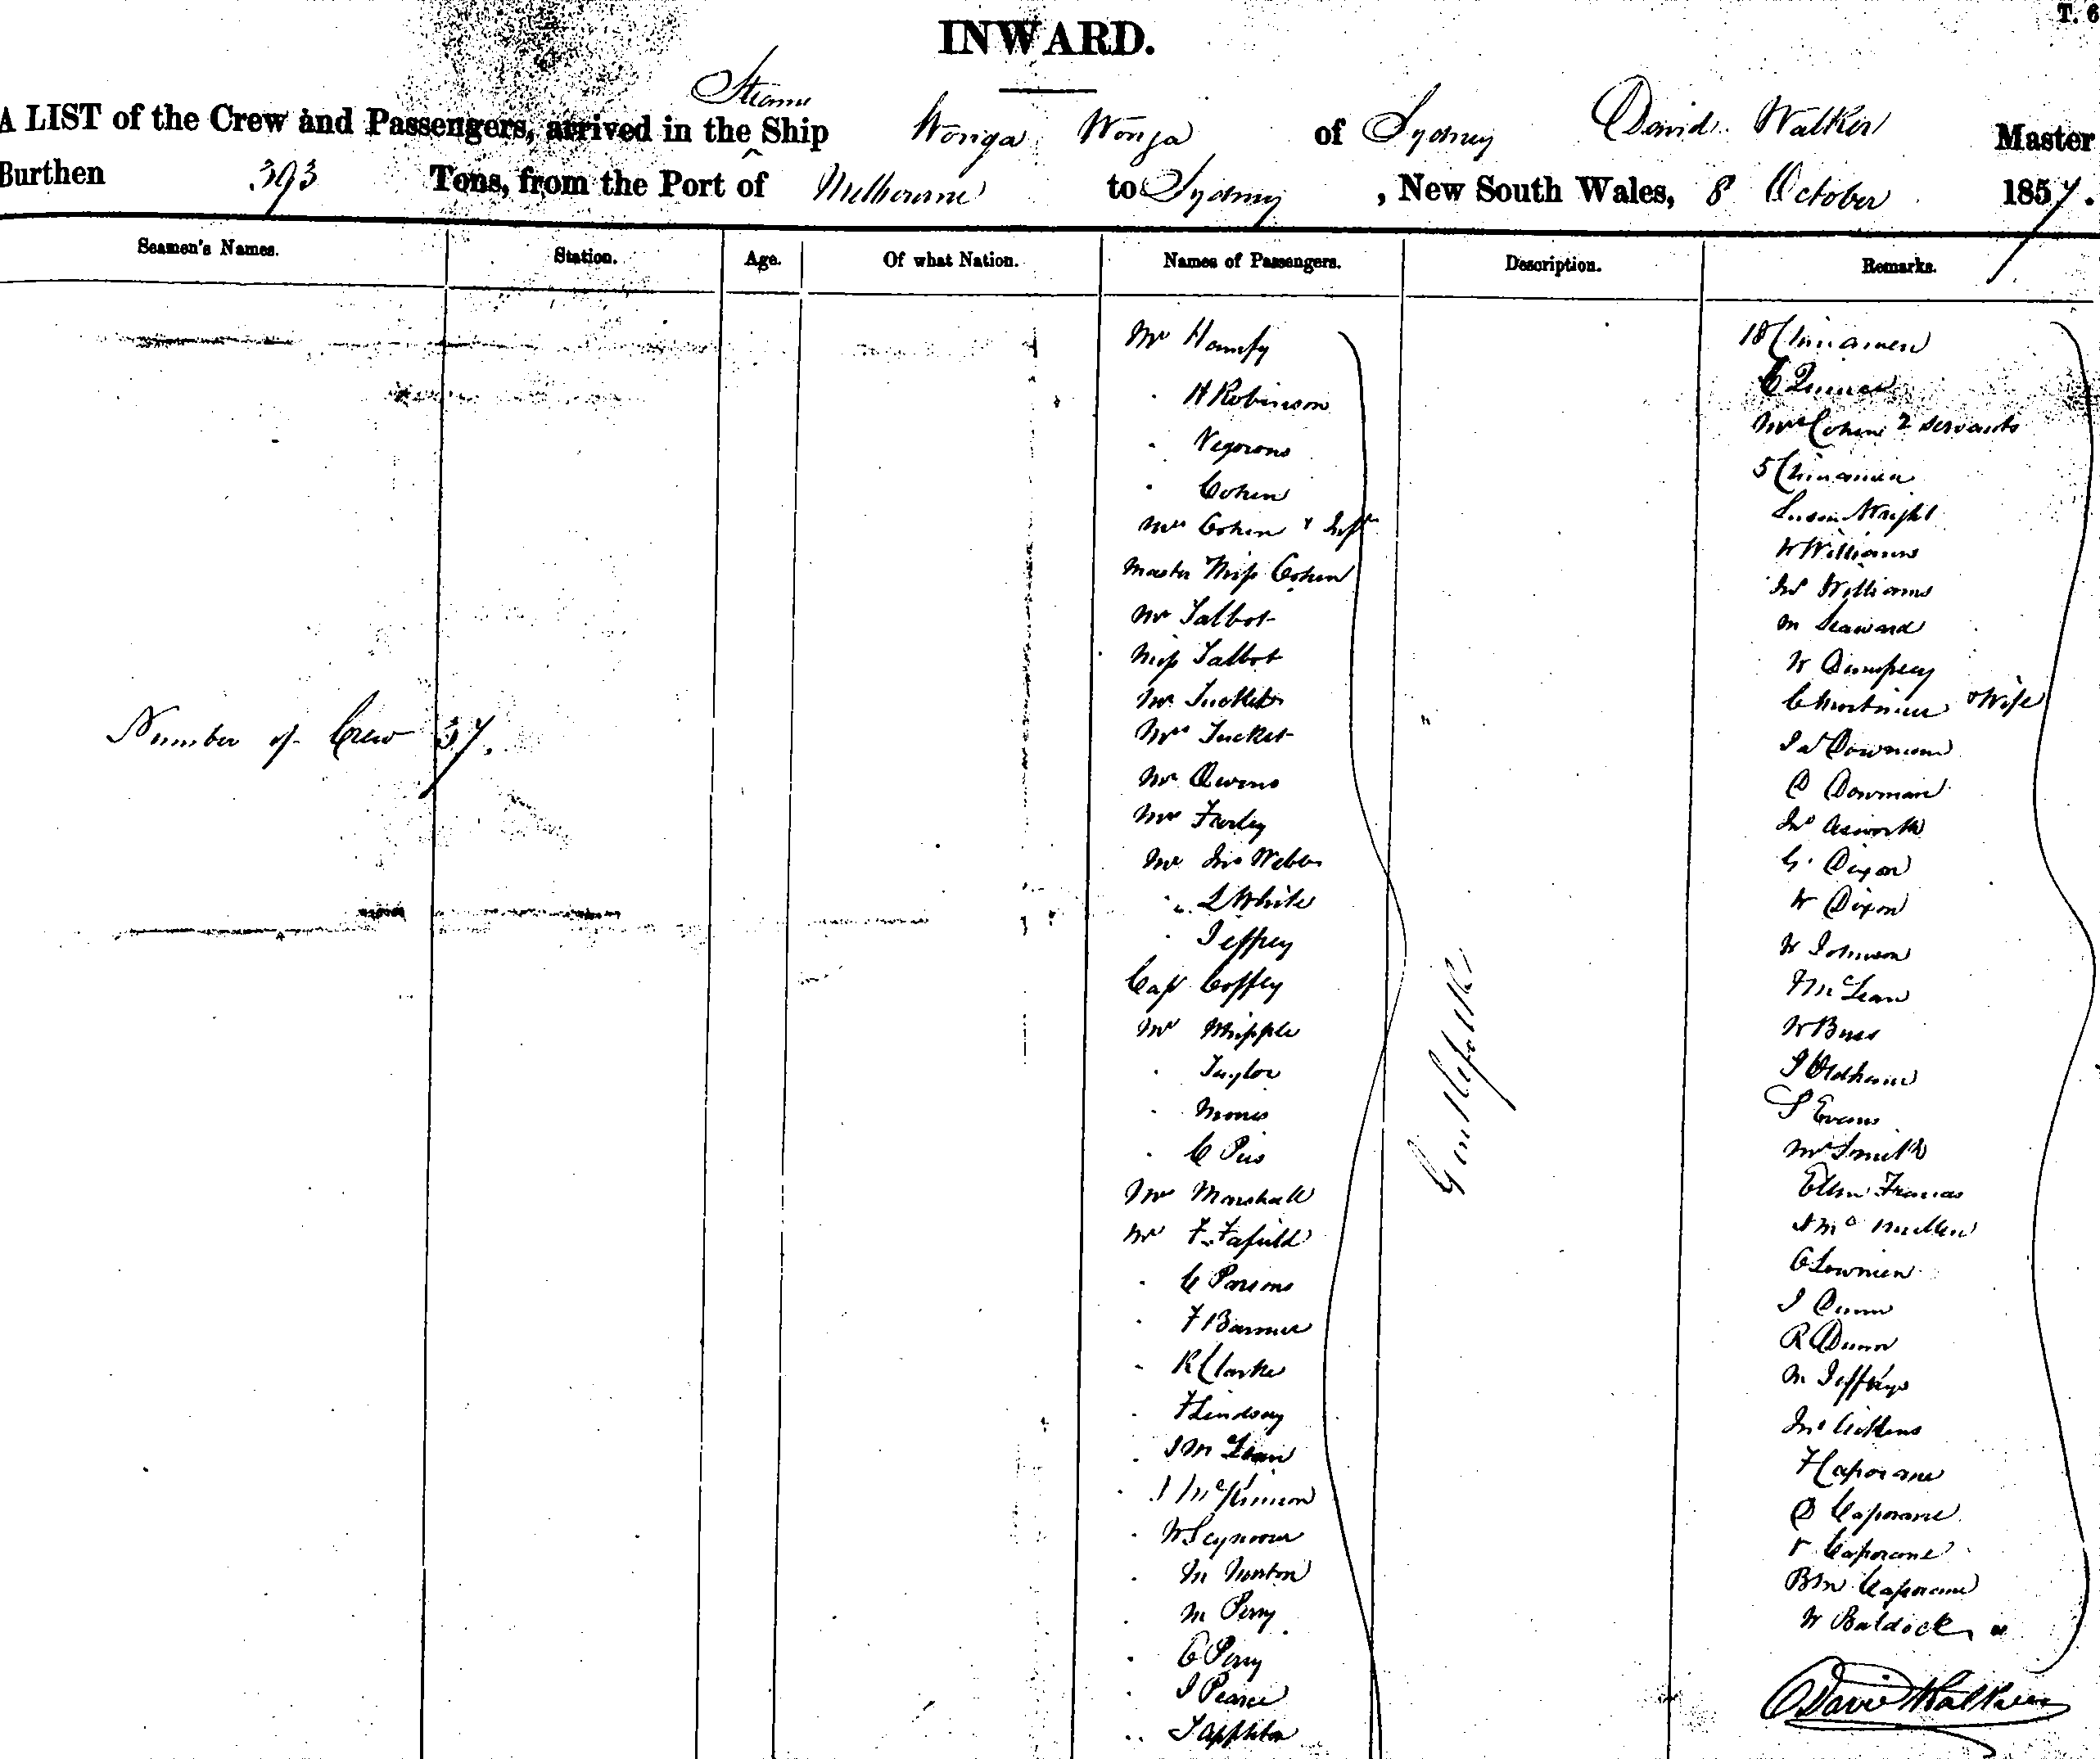 T. 6
INWARD.
Steam
A LIST of the Crew and Passengers, arrived in the Ship Wonga Wonga of Sydney David Walker Master
Burthen 393 Tons, from the Port of Melbourne to Sydney, New South Wales, 8 October 1857.
Seamen's Names. Station. Age. Of what Nation. Names of Passengers. Description. Remarks.
Number of Crew 37.
Mr
H Robinson
Cohen
Mrs Cohen & Inft
Master Miss Cohen
Mr Talbot
Miss Talbot
Mr Tucket
Mrs Tucket
Mr Owens
Mr Farley
Mr Jno Webb
White
Jeffrey
Capt Coffey
Mr Whipple
Taylor
C
Mr Marshall
Mr F.
C Parsons
F
R Clarke
F Lindsay
J McLean
J McKinnon
W Seymour
M Norton
M Perry
C Perry
J Pearce
J Appleton
18 Chinamen
C
Mrs Cohen 2 servants
5 Chinamen
Susan Wright
W Williams
Jno Williams
M Seaward
W Dempsey
C Mortimer & Wife
Jas Dowman
D Dowman
Jno
G. Dixon
W Dixon
W Johnson
McLean
W
J Oldham
S Evans
Mr Smith
Ellen Francis
C
J Dunn
R Dunn
M Jeffreys
Jno
F Caporane
D Caporane
Caporane
Caporane
W Baldock
David Walker